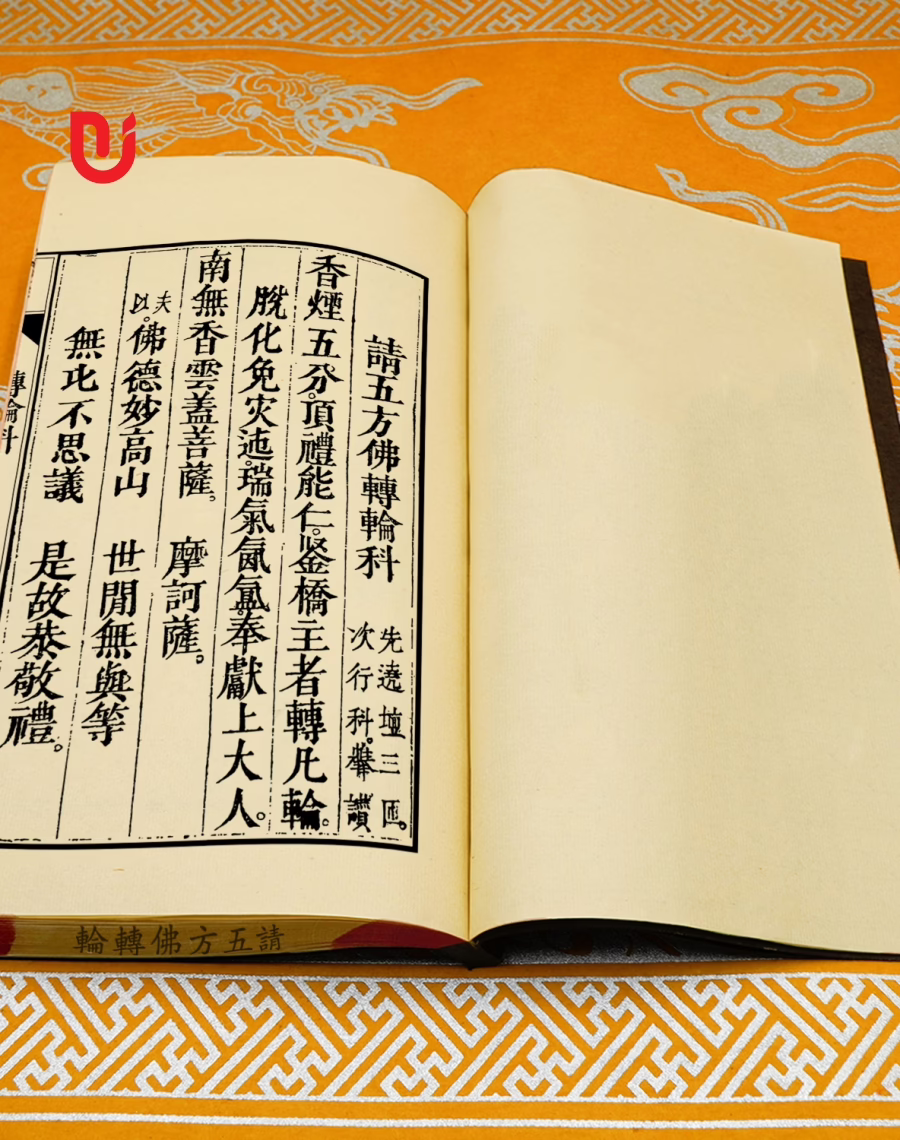 請五方佛轉輪科
先遶壇三匝。
次行科。舉讚
香煙五分。頂禮能仁。鋻橋主者轉凡輪。
脫化免灾迍。瑞氣氤氳。奉獻上大人。
南無香雲蓋菩薩。 摩訶薩。
夫以。佛德妙高山 世閒無與等
無比不思議 是故恭敬禮。
轉輪科
請五方佛轉輪